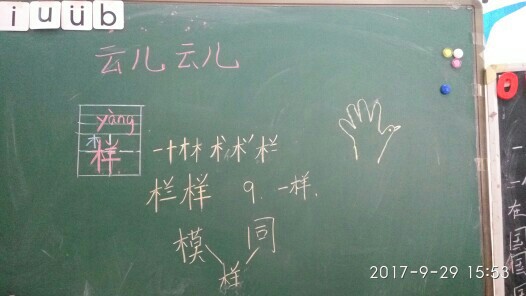 i u ü b
云儿 云儿
yàng
样
一 十 才 木
栏 样 9. 一样.
模 同
样
2017-9-29 15:53
一
在
国
国